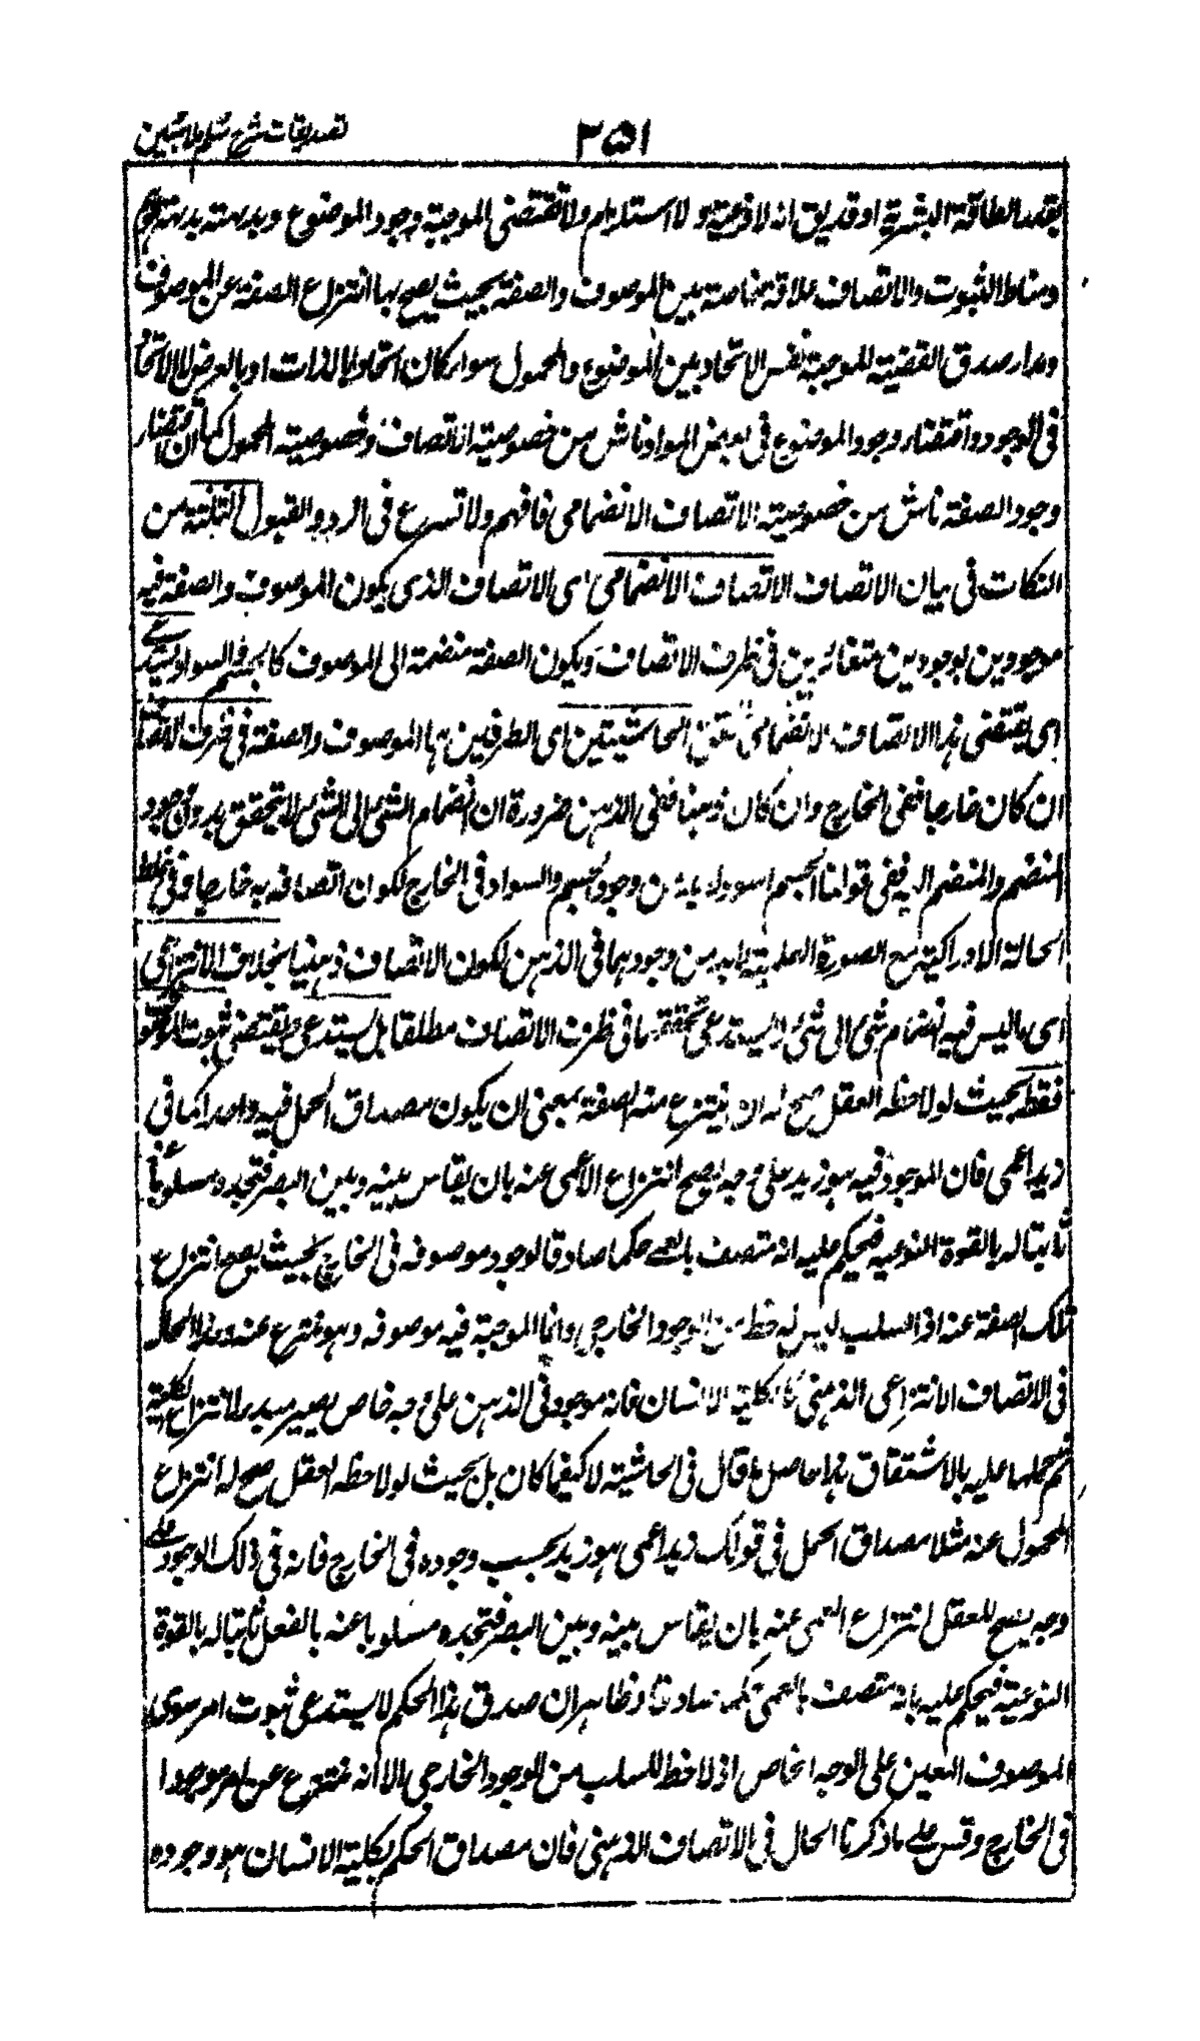 تصدیقات شرح سلم ملا مبین
۳۵۱
بقدر الطاقة البشرية او قد يق انه لا فرعية و لا استلزام ولا تقتضى الموجبة وجود الموضوع وبدهته بدهة
ومناط الثبوت والاتصاف علاقة خاصة بين الموصوف والصفة بحيث يصح بها انتزاع الصفة عن الموصوف
ومدار صدق القضية الموجبة نفس الاتحاد بين الموضوع والمحمول سواء كان اتحادا بالذات او بالعرض لا الاتحاد
فى الوجود واقتضاء وجود الموضوع فى بعض المواد ناش من خصوصية الاتصاف وخصوصية المحمول كما ان اقتضاء
وجود الصفة ناش من خصوصية الاتصاف الانضمامى فافهم ولا تسرع فى الرد والقبول الثالثة من
النكات فى بيان الاتصاف الاتصاف الانضمامى اى الاتصاف الذى يكون الموصوف والصفة فيه
موجودين بوجودين متغايرين فى ظرف الاتصاف ويكون الصفة منضمة الى الموصوف كالجسم والسواد يستدعى
اى يقتضى هذا الاتصاف الانضمامى تحقق الحاشيتين اى الطرفين هما الموصوف والصفة فى ظرف الاتصاف
ان كان خارجا ففى الخارج وان كان ذهنا ففى الذهن ضرورة ان انضمام الشئ الى الشئ لا يتحقق بدون وجود
المنضم والمنضم اليه ففى قولنا الجسم اسود لا بد من وجود الجسم والسواد فى الخارج لكون اتصافه به خارجيا وفى خلط
الحالة الادراكية مع الصورة العلمية لا بد من وجودهما فى الذهن لكون الاتصاف ذهنيا بخلاف الانتزاعى
اى ما ليس فيه انضمام شئ الى شئ لا يستدعى تحققهما فى ظرف الاتصاف مطلقا بل يستدعى ويقتضى ثبوت الموصوف
فقط بحيث لو لاحظه العقل صح له ان ينتزع منه الصفة بمعنى ان يكون مصداق الحمل فيه واحدا كما فى
زيد اعمى فان الموجود فيه هو زيد على وجه يصح انتزاع الاعمى عنه بان يقاس بينه وبين البصر فتجده مسلوبا عنه
ثابتا له بالقوة النوعية فيحكم عليه انه متصف بالعمى حكما صادقا لوجود موصوفه فى الخارج بحيث يصح انتزاع
تلك الصفة عنه اذ السلب ليس له حظ من الوجود الخارجى وانما الموجبة فيه موصوفه وهو منتزع عنه وهذا الحال
فى الاتصاف الانتزاعى الذهنى كما كلية الانسان فانه موجود فى الذهن على وجه خاص يصير مبدء لانتزاع الكلية
ثم حملها عليه بالاشتقاق هذا حاصل ما قال فى الحاشية لا كيفما كان بل بحيث لو لاحظه العقل صح له انتزاع
المحمول عنه مثلا مصداق الحمل فى قولك زيد اعمى هو زيد بحسب وجوده فى الخارج فانه فى ذلك الوجود على
وجه يصح للعقل انتزاع العمى عنه بان يقاس بينه وبين البصر فتجده مسلوبا عنه بالفعل ثابتا له بالقوة
النوعية فيحكم عليه بانه متصف بالعمى حكما صادقا وظاهر ان صدق هذا الحكم لا يستدعى ثبوت امر سوى
الموصوف المعين على الوجه الخاص اذ لا حظ للسلب من الوجود الخارجى الا انه منتزع عن امر موجودا
فى الخارج وقس على ما ذكرنا الحال فى الاتصاف الذهنى فان مصداق الحكم بكلية الانسان هو وجوده